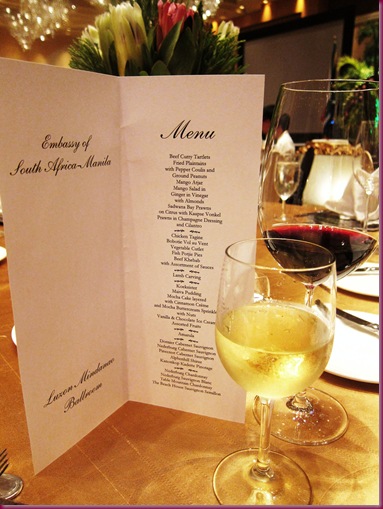 Embassy of
South Africa-Manila
Luzon Mindanao
Ballroom
Menu
Beef Curry Tartlets
Fried Plantains
with Pepper Coulis and
Ground Peanuts
Mango Atjar
Mango Salad in
Ginger in Vinegar
with Almonds
Sadwana Bay Prawns
on Citrus with Kaapse Vonkel
Prawns in Champagne Dressing
and Cilantro
Chicken Tagine
Bobotie Vol au Vent
Vegetable Cutlet
Fish Potjie Pies
Beef Khebab
with Assortment of Sauces
Lamb Carving
Koeksister
Marva Pudding
Mocha Cake layered
with Cinnamon Crème
and Mocha Buttercream Sprinkled
with Nuts
Vanilla & Chocolate Ice Cream
Assorted Fruits
Amarula
Cabernet Sauvignon
Nederburg Cabernet Sauvignon
Cabernet Sauvignon
Pinotage
Nederburg Chardonnay
Nederburg Sauvignon Blanc
Table Mountain Chardonnay
The Beach House Sauvignon Semillon